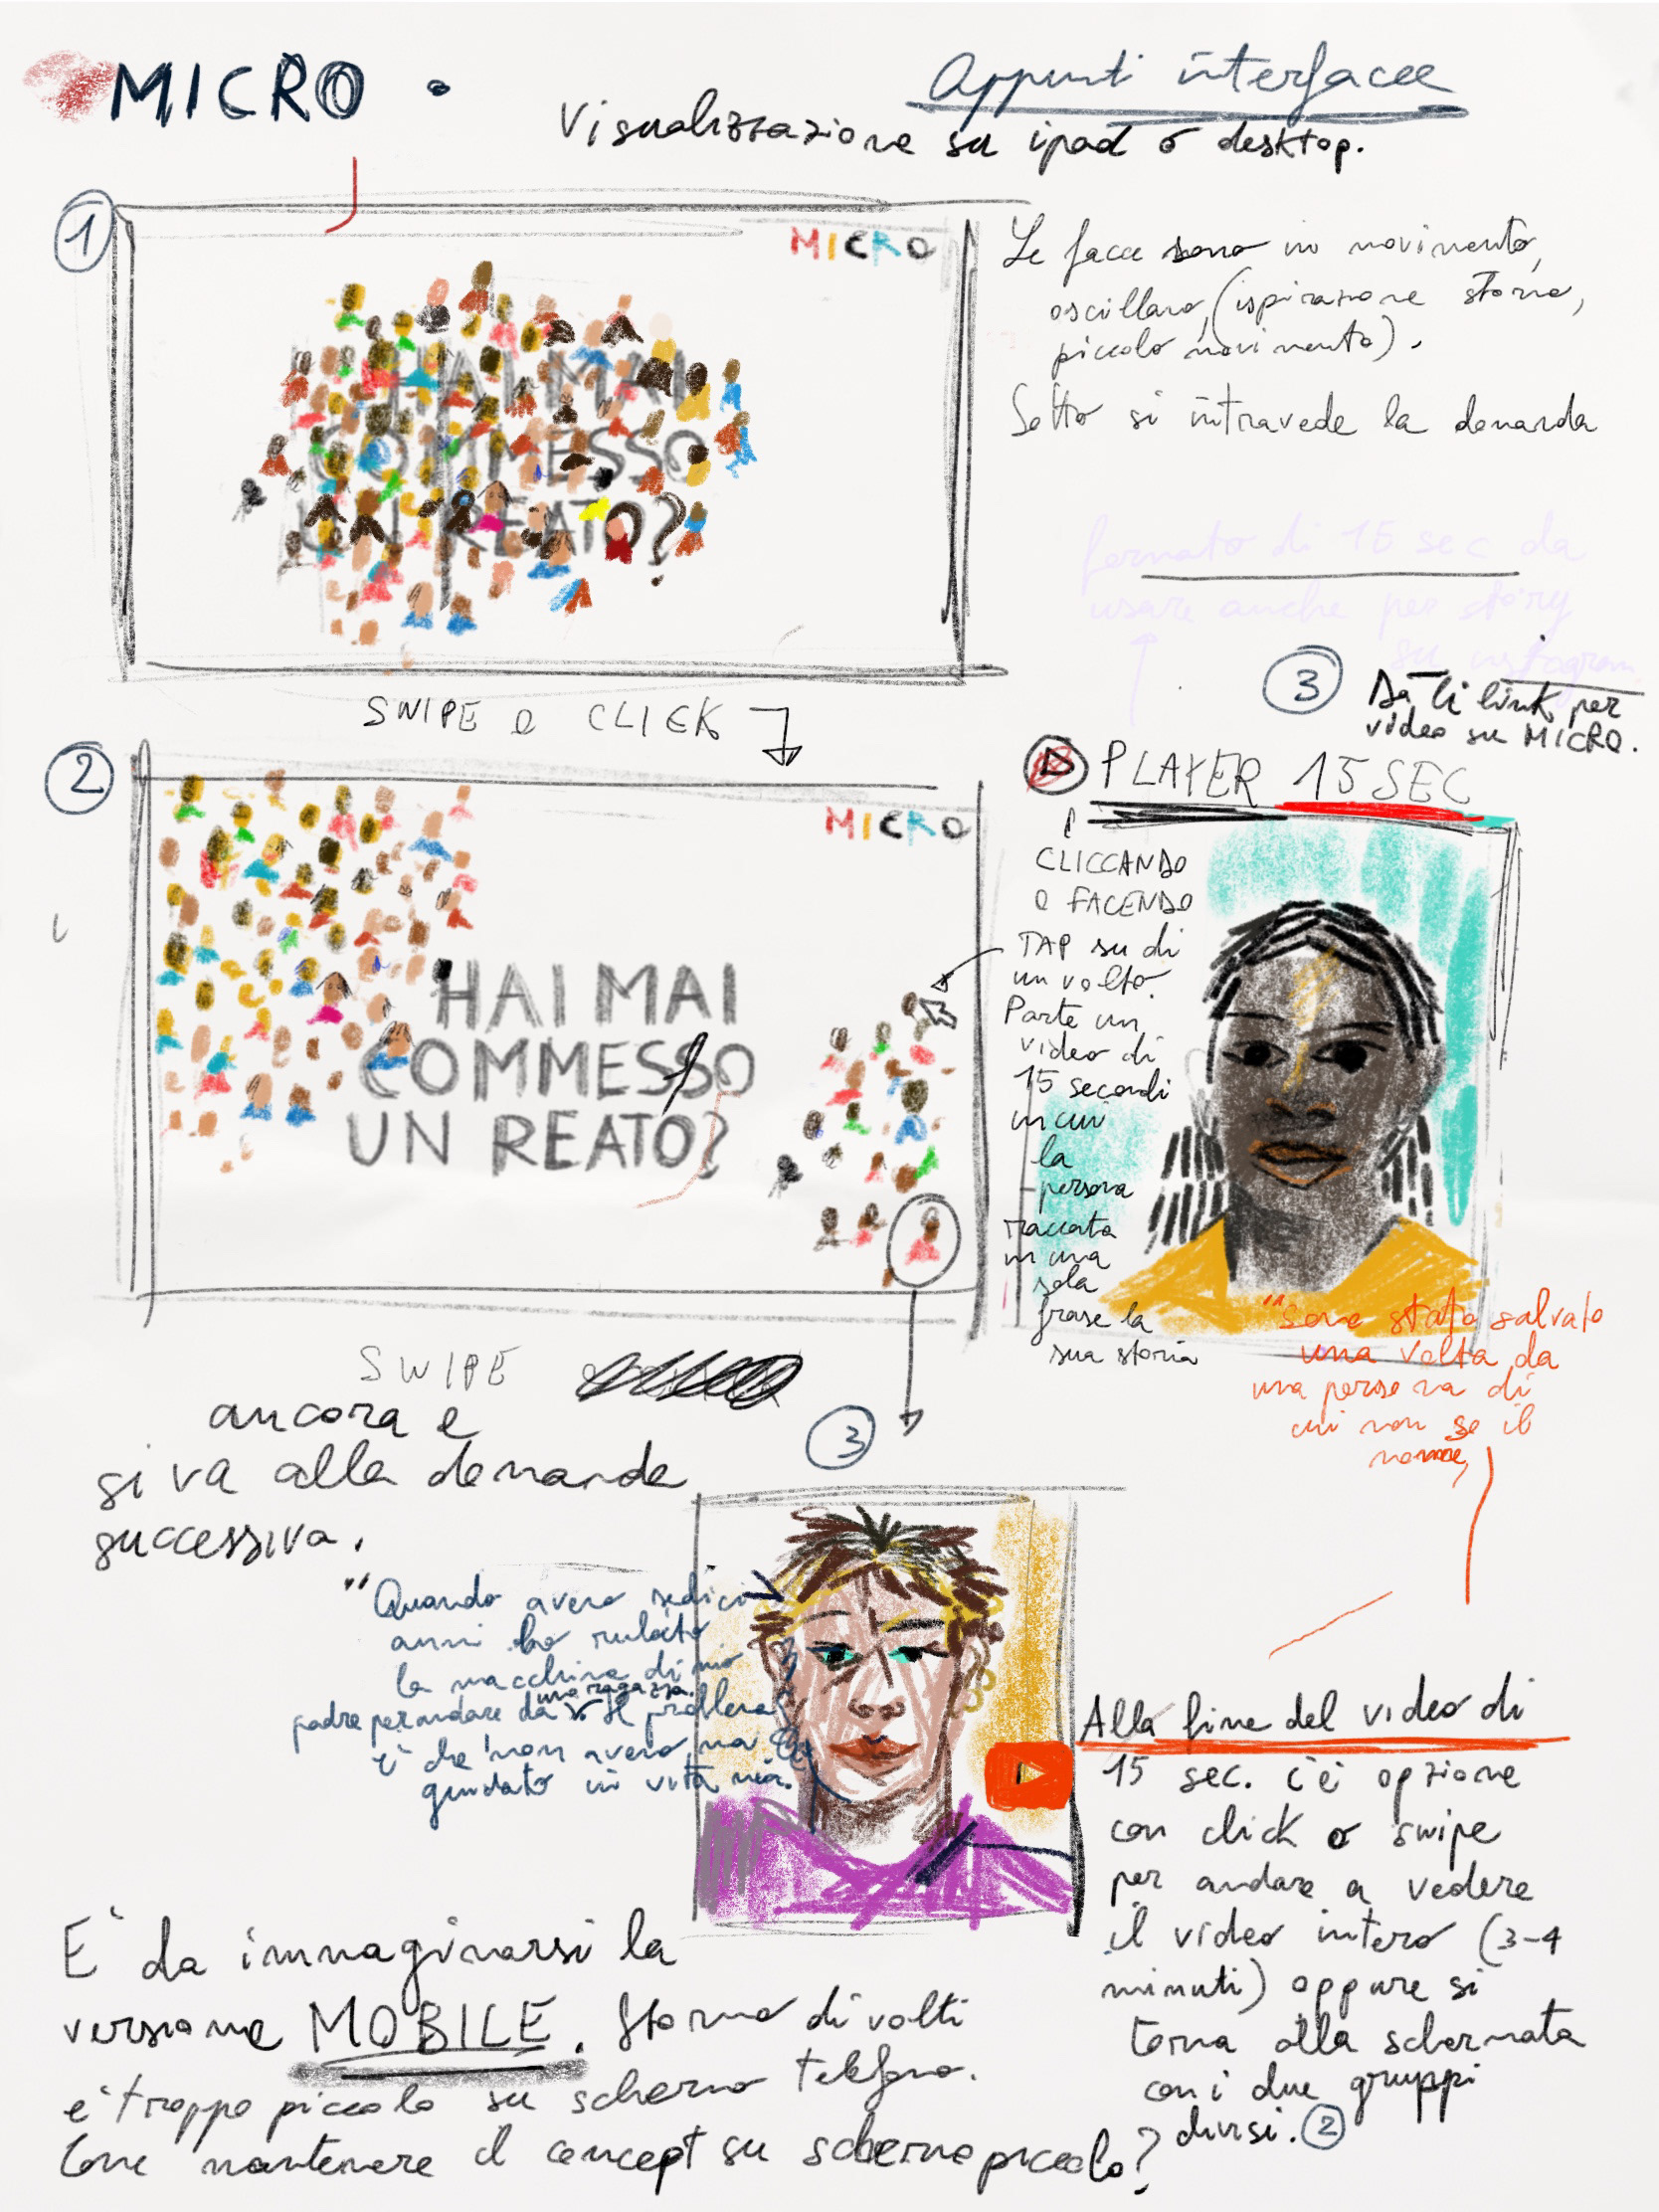 MICRO
Appunti interfacce
Visualizzazione su ipad o desktop.
1
MICRO
HAI MAI
COMMESSO
UN REATO?
Le facce sono in movimento,
oscillano, (ispirazione stormo,
piccolo movimento).
Sotto si intravede la domanda
formato di 15 sec da
usare anche per story
su instagram
SWIPE o CLICK
2
MICRO
HAI MAI
COMMESSO
UN REATO?
3
Da lì link per
video su MICRO.
PLAYER 15 SEC
CLICCANDO
O FACENDO
TAP su di
un volto.
Parte un
video di
15 secondi
in cui
la
persona
racconta
in una
sola
frase la
sua storia
"Sono stato salvato
una volta da
una persona di
cui non so il
nome,
SWIPE
ancora e
si va alla domanda
successiva.
3
"Quando avevo sedici
anni ho rubato
la macchina di mio
padre per andare da una ragazza. Il problema
è che non avevo mai
guidato in vita mia.
Alla fine del video di
15 sec. c'è opzione
con click o swipe
per andare a vedere
il video intero (3-4
minuti) oppure si
torna alla schermata
con i due gruppi
divisi. 2
E' da immaginarsi la
versione MOBILE. Stormo di volti
è troppo piccolo su schermo telefono.
Come mantenere il concept su schermo piccolo?